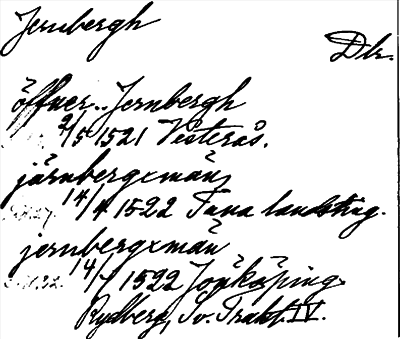 Jernbergh
Dlr.
öffuer.. Jernbergh
2/5 1521 Vesterås.
järnbergxmän
14/4 1522 Tuna landsting.
jernbergxmän
14/4 1522 Jonköping.
Rydberg, Sv. Trakt. IV.